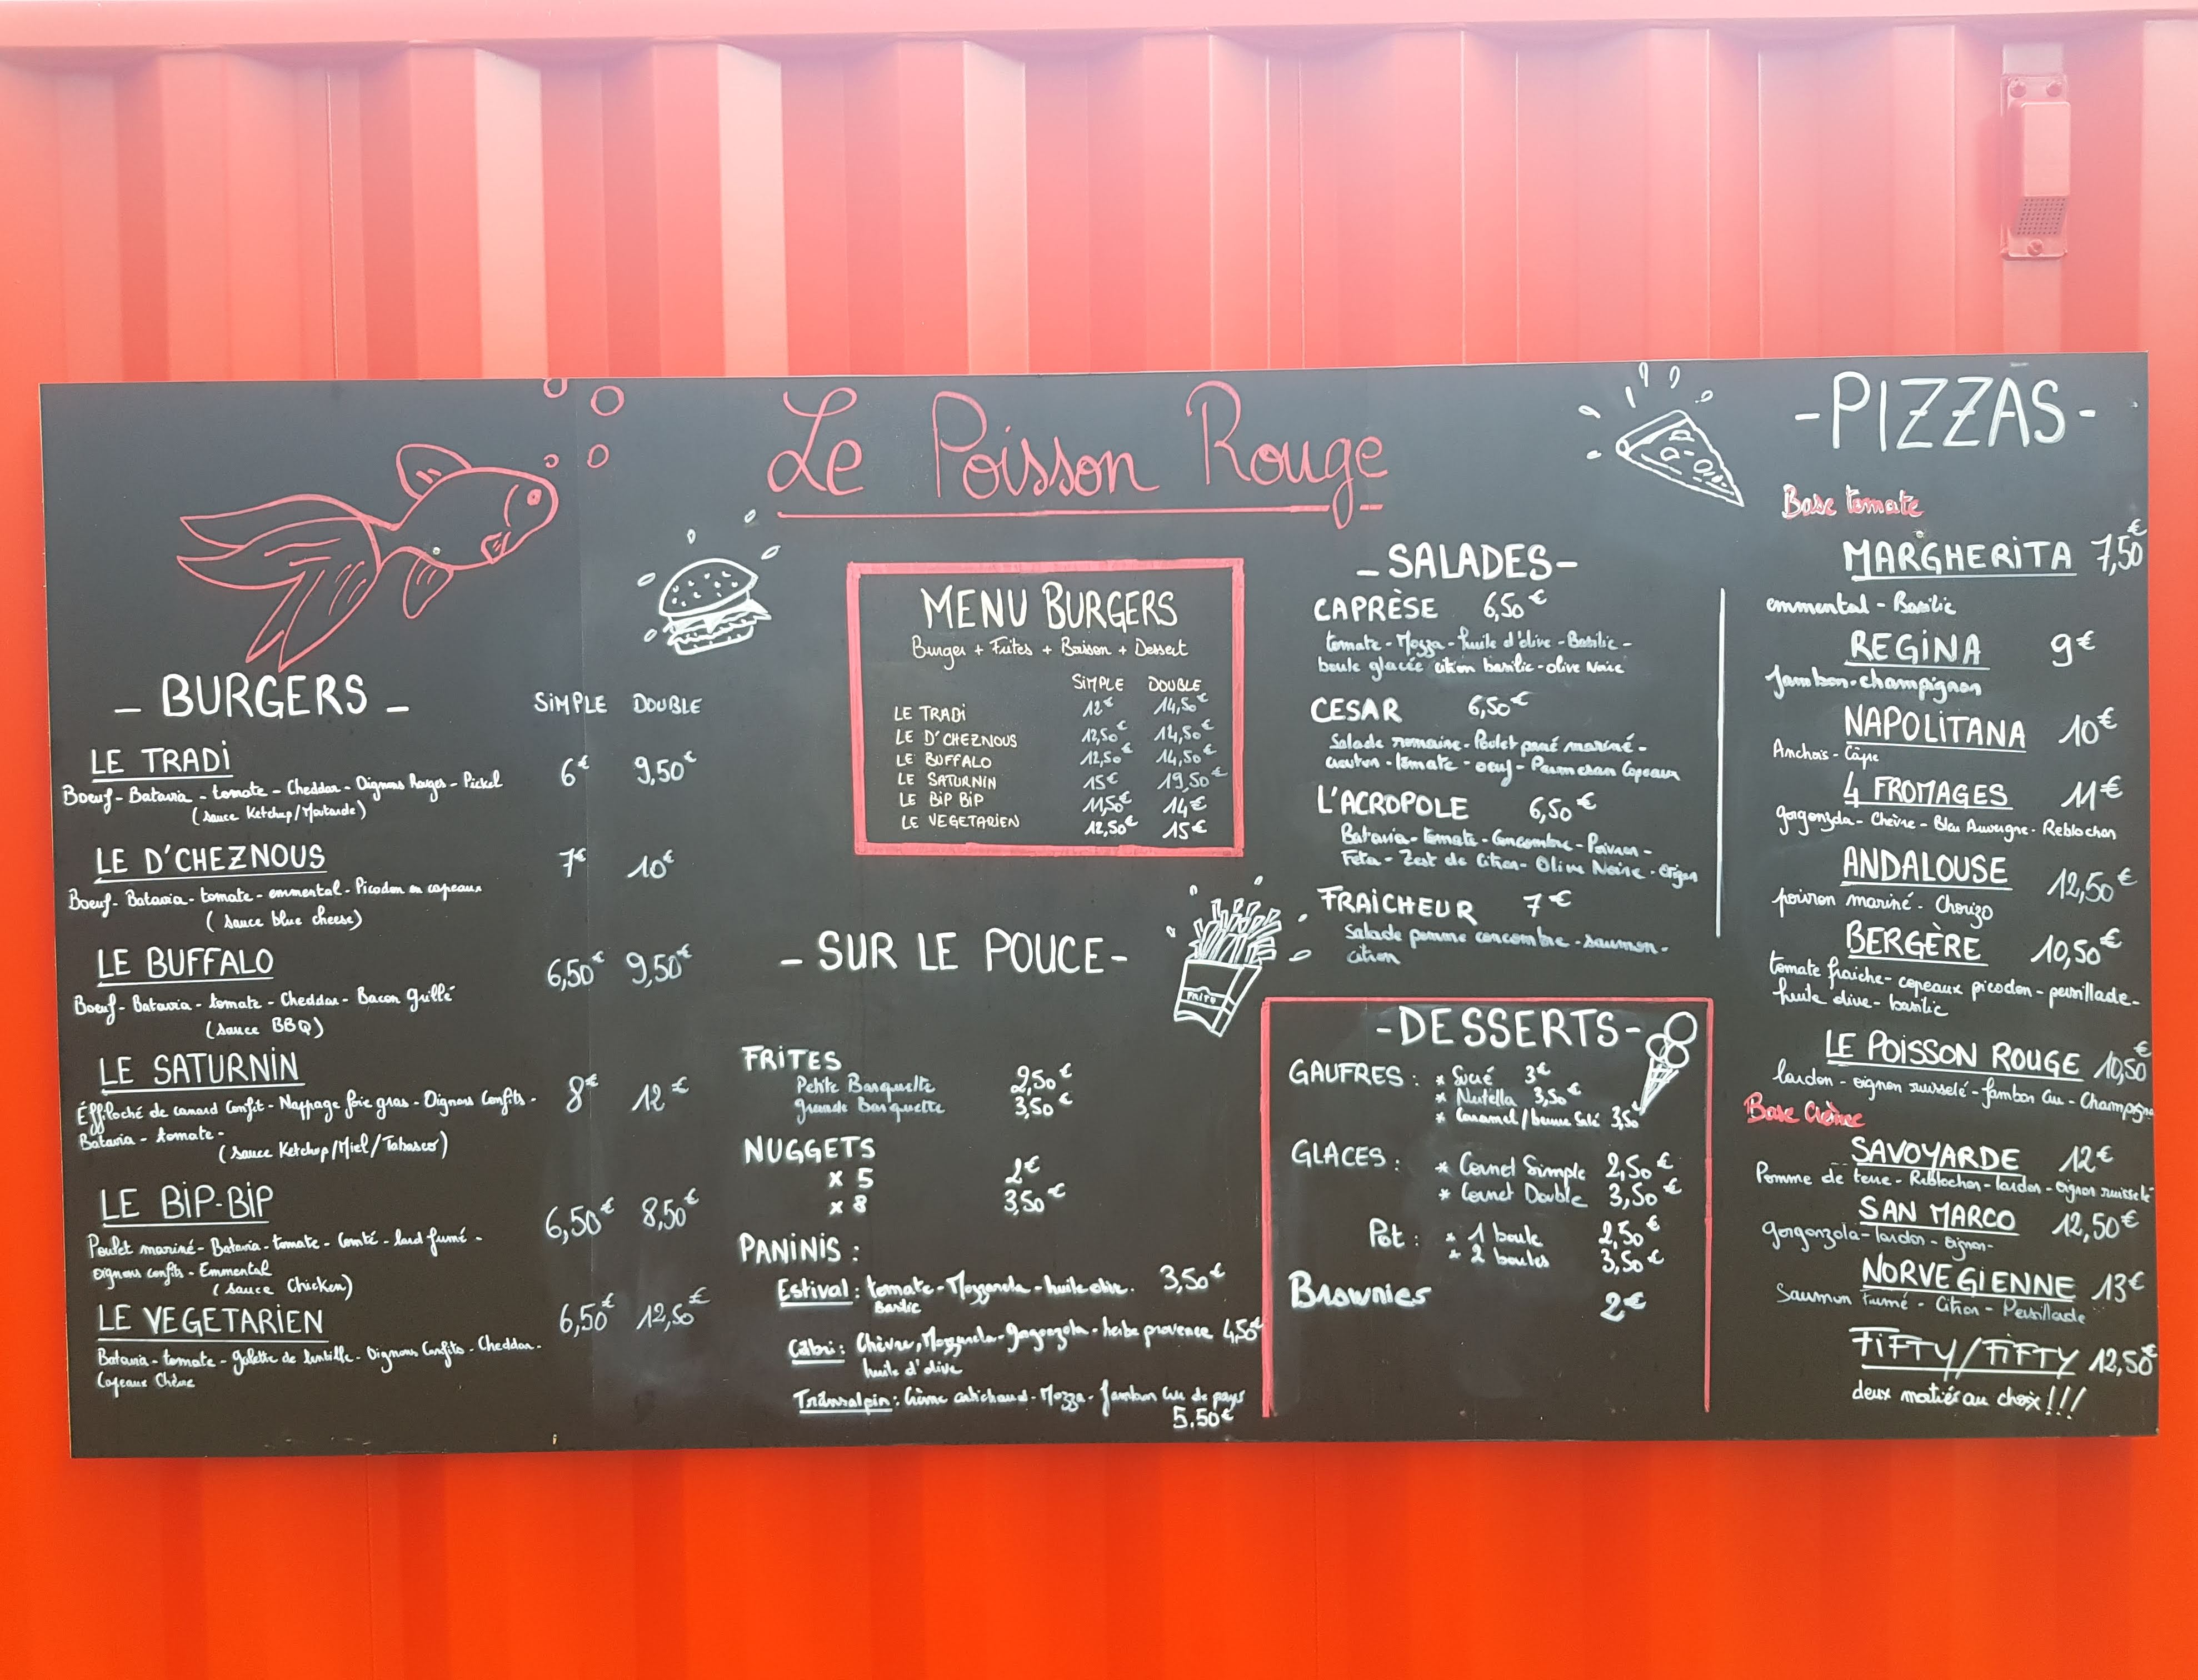 Le Poisson Rouge
- BURGERS -
SIMPLE DOUBLE
LE TRADI 6€ 9,50€
Boeuf - Batavia - tomate - Cheddar - Oignons Rouges - Pickel
(sauce Ketchup/Moutarde)
LE D'CHEZNOUS 7€ 10€
Boeuf - Batavia - tomate - emmental - Picodon en copeaux
(sauce blue cheese)
LE BUFFALO 6,50€ 9,50€
Boeuf - Batavia - tomate - Cheddar - Bacon grillé
(sauce BBQ)
LE SATURNIN 8€ 12€
Éffiloché de canard Confit - Nappage foie gras - Oignons Confits -
Batavia - tomate -
(sauce Ketchup/Miel/Tabasco)
LE BIP-BIP 6,50€ 8,50€
Poulet mariné - Batavia - tomate - Comté - lard fumé -
oignons confits - Emmental
(sauce Chicken)
LE VEGETARIEN 6,50€ 12,50€
Batavia - tomate - galette de lentille - Oignons Confits - Cheddar -
Copeaux Chèvre
MENU BURGERS
Burger + Frites + Boisson + Dessert
SIMPLE DOUBLE
LE TRADI 12€ 14,50€
LE D'CHEZNOUS 12,50€ 14,50€
LE BUFFALO 12,50€ 14,50€
LE SATURNIN 15€ 19,50€
LE BIP BIP 11,50€ 14€
LE VEGETARIEN 12,50€ 15€
- SUR LE POUCE -
FRITES
Petite Barquette 2,50€
grande Barquette 3,50€
NUGGETS
x 5 2€
x 8 3,50€
PANINIS :
Estival : tomate - Mozzarela - huile olive. 3,50€
Basilic
Cabri : Chèvre, Mozzarela - gogonzola - herbe provence 4,50€
huile d'olive
Transalpin : Crème artichaud - Mozza - Jambon Cru de pays
5.50€
- SALADES -
CAPRÈSE 6,50€
tomate - Mozza - huile d'olive - Basilic -
boule glacée citron basilic - olive Noire
CESAR 6,50€
Salade romaine - Poulet pané mariné -
crouton - tomate - oeuf - Parmesan Copeaux
L'ACROPOLE 6,50€
Batavia - tomate - Concombre - Poivron -
Feta - Zest de Citron - Olive Noire -
FRAICHEUR 7€
Salade pomme concombre - saumon -
citron
- DESSERTS -
GAUFRES : * Sucré 3€
* Nutella 3,50€
* Caramel/beurre Salé 3,50
GLACES : * Cornet Simple 2,50€
* Cornet Double 3,50€
Pot : * 1 boule 2,50€
* 2 boules 3,50€
Brownies 2€
- PIZZAS -
Base tomate
MARGHERITA 7,50€
emmental - Basilic
REGINA 9€
Jambon - champignon
NAPOLITANA 10€
Anchois - Câpre
4 FROMAGES 11€
gorgonzola - Chèvre - Bleu Auvergne - Reblochon
ANDALOUSE 12,50€
poivron mariné - Chorizo
BERGÈRE 10,50€
tomate fraiche - copeaux picodon - persillade -
huile olive - basilic
LE POISSON ROUGE 10,50€
lardon - oignon ruisselé - Jambon Cru - Champigno
Base Crème
SAVOYARDE 12€
Pomme de terre - Reblochon - lardon - oignon ruisselé
SAN MARCO 12,50€
gorgonzola - lardon - oignon -
NORVEGIENNE 13€
Saumon fumé - Citron - Persillade
FIFTY/FIFTY 12,50€
deux moitiés au choix !!!